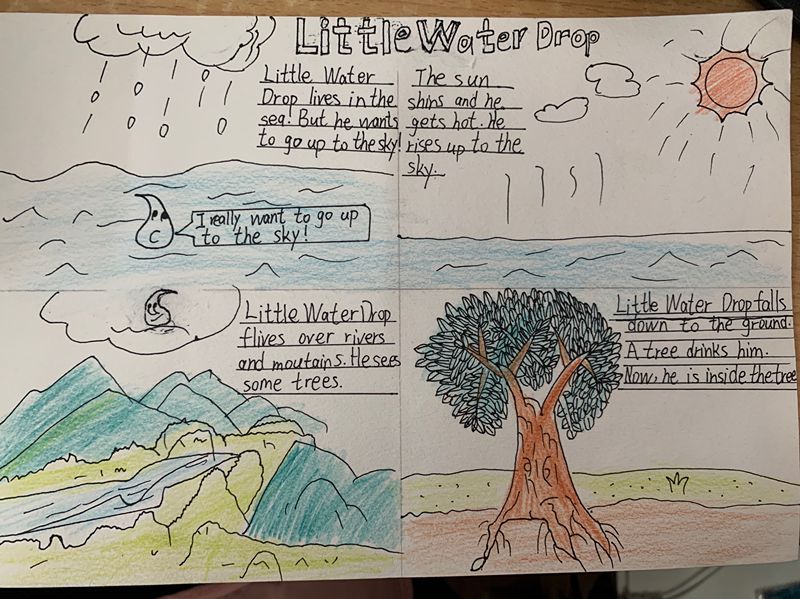 Little Water Drop
Little Water
Drop lives in the
sea! But he wants
to go up to the sky!
The sun
shins and he
gets hot. He
rises up to the
sky.
I really want to go up
to the sky!
Little Water Drop
flives over rivers
and moutains. He sees
some trees.
Little Water Drop falls
down to the ground.
A tree drinks him.
Now, he is inside the tree